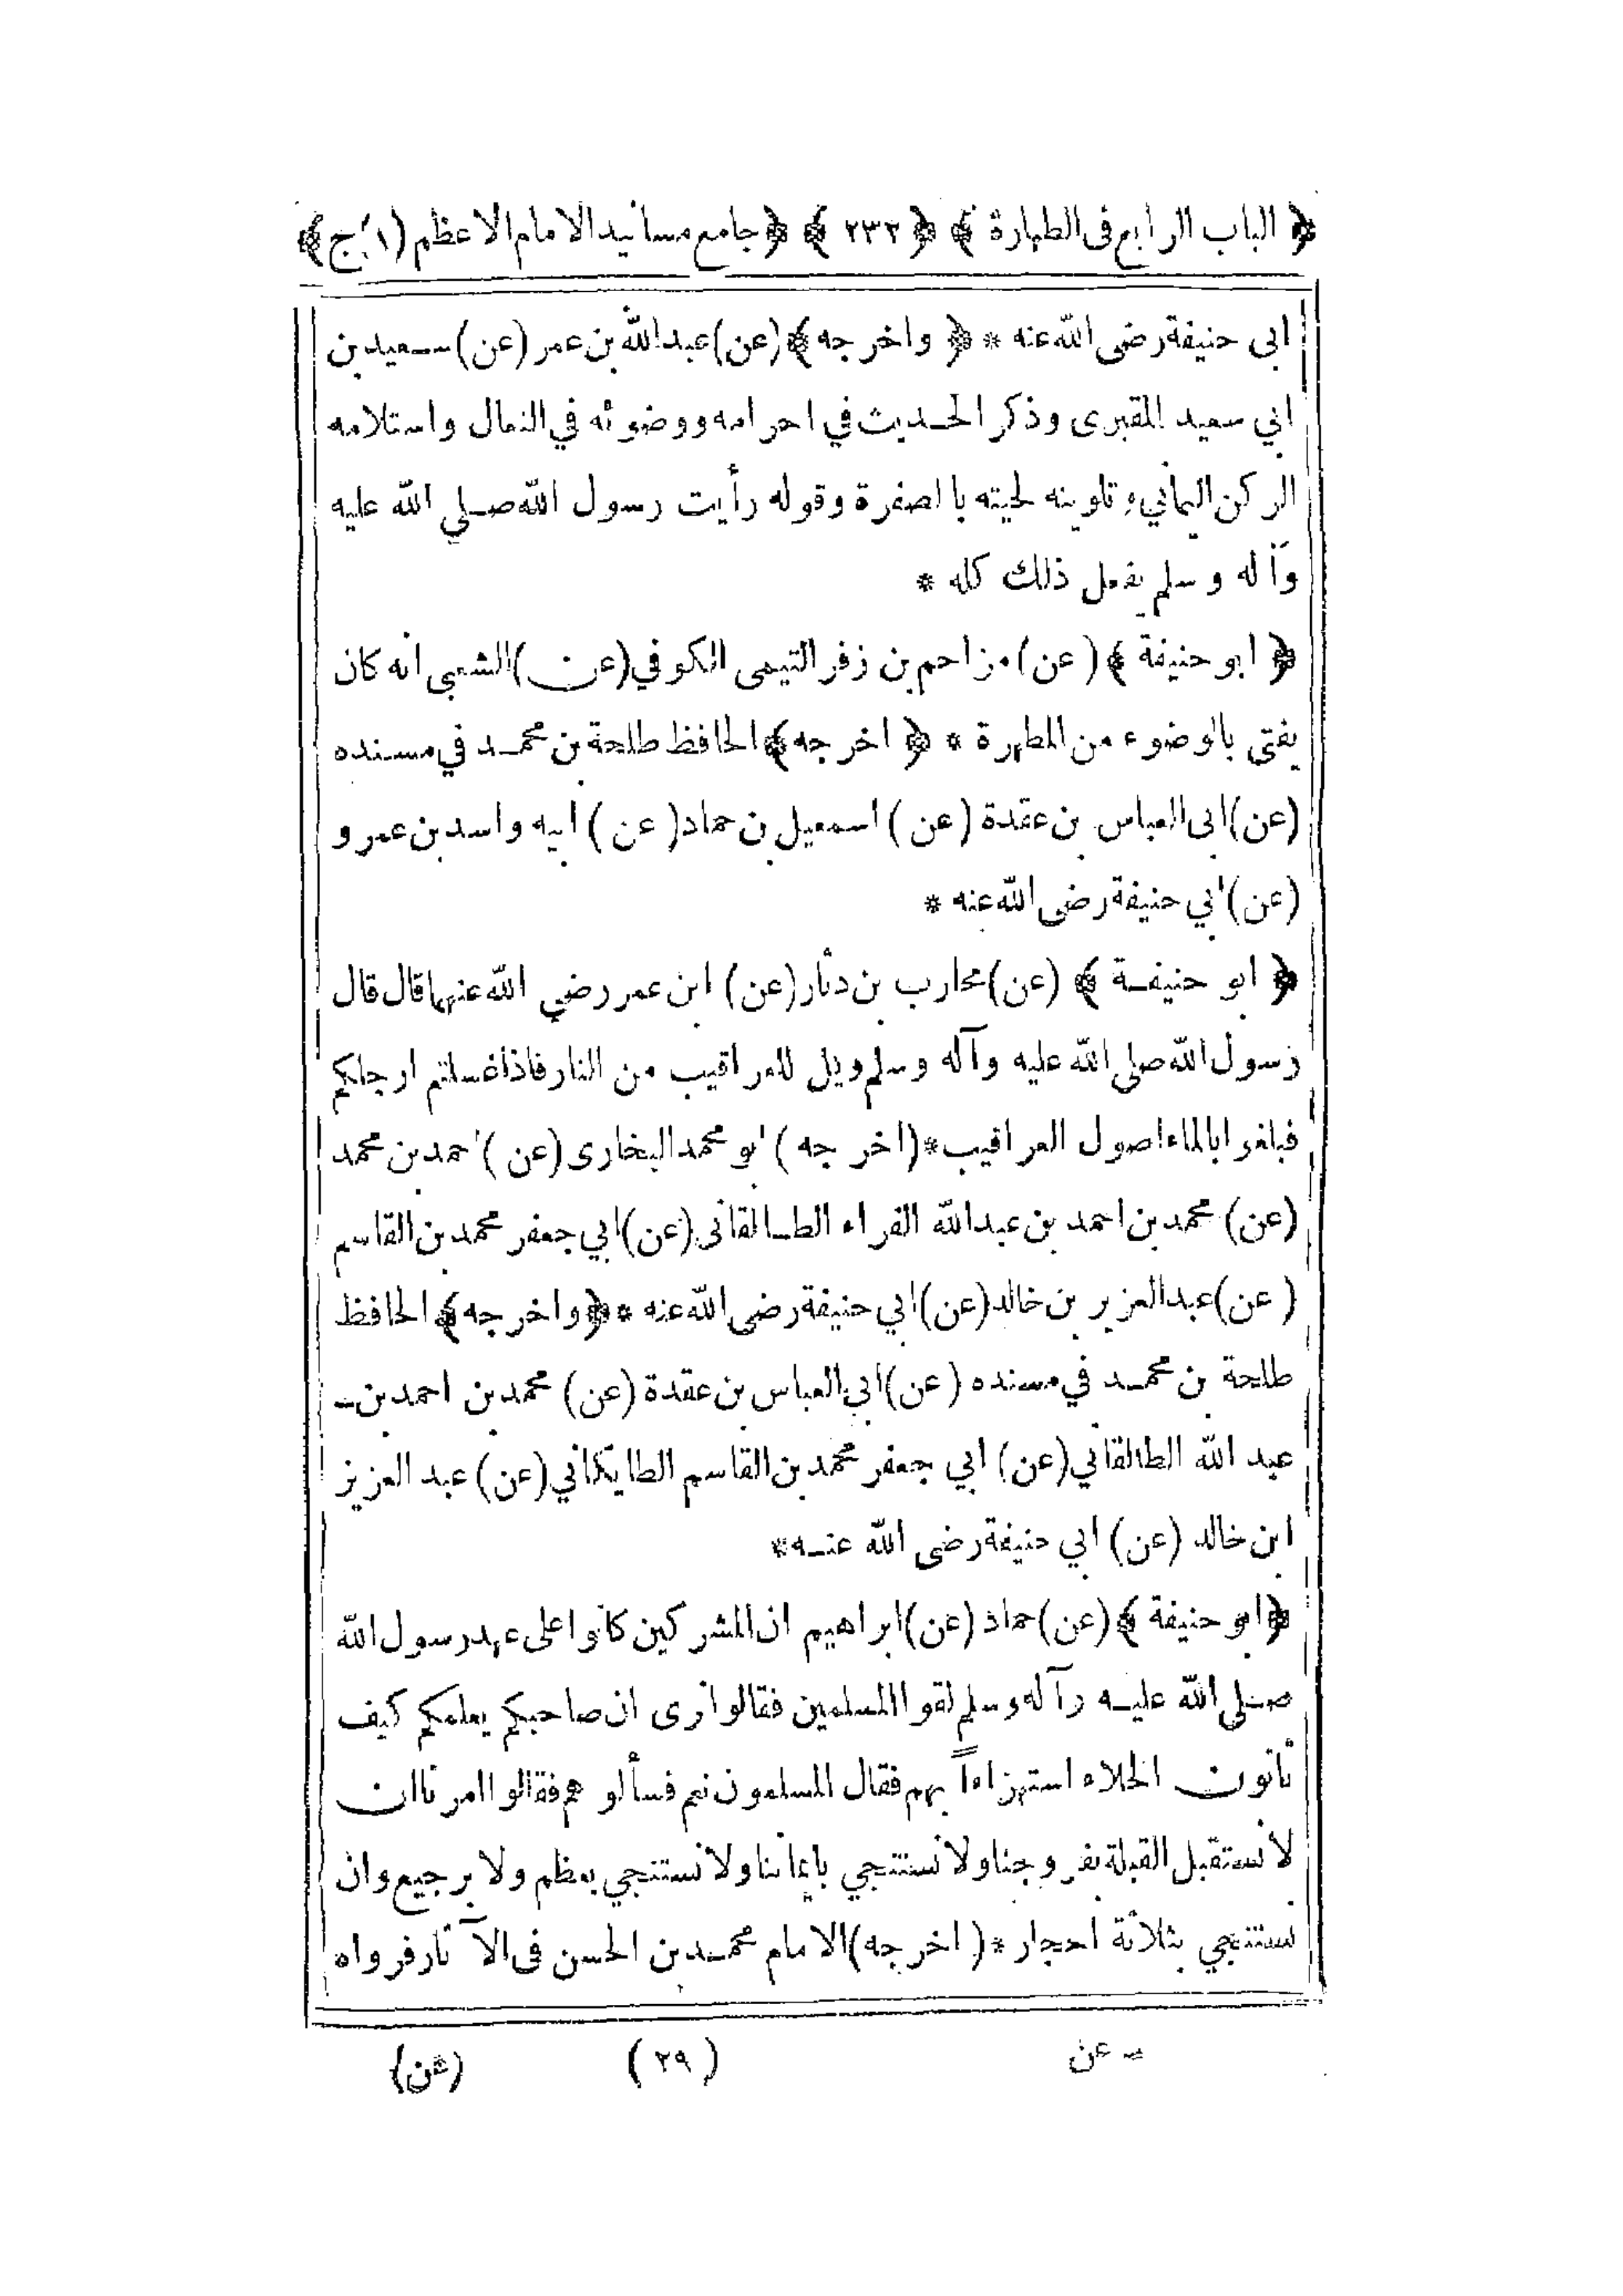 ﴿ الباب الرابع فى الطهارة ﴾ ﴿ ٢٣٣ ﴾ ﴿ جامع مسانيد الامام الاعظم (١) ج ﴾
ابى حنيفة رضى الله عنه * ﴿ واخرجه ﴾ (عن) عبد الله بن عمر (عن) سعيد بن
ابي سعيد المقبرى وذكر الحديث في احرامه ووضوئه في النعال واستلامه
الركن اليماني وتلوينه لحيته بالصفرة وقوله رأيت رسول الله صلي الله عليه
وآله وسلم يفعل ذلك كله *
﴿ ابو حنيفة ﴾ (عن) مزاحم بن زفر التيمى الكوفي (عن) الشعبى انه كان
يفتى بالوضوء من المطهرة * ﴿ اخرجه ﴾ الحافظ طلحة بن محمد في مسنده
(عن) ابى العباس بن عقدة (عن) اسمعيل بن حماد (عن) ابيه واسد بن عمرو
(عن) ابي حنيفة رضى الله عنه *
﴿ ابو حنيفة ﴾ (عن) محارب بن دثار (عن) ابن عمر رضي الله عنهما قال قال
رسول الله صلى الله عليه وآله وسلم ويل للعراقيب من النار فاذا غسلتم ارجلكم
فبلغوا بالماء اصول العراقيب * (اخرجه) ابو محمد البخارى (عن) احمد بن محمد
(عن) محمد بن احمد بن عبد الله الفراء الطالقانى (عن) ابي جعفر محمد بن القاسم
(عن) عبد العزيز بن خالد (عن) ابي حنيفة رضى الله عنه * ﴿ واخرجه ﴾ الحافظ
طلحة بن محمد في مسنده (عن) ابي العباس بن عقدة (عن) محمد بن احمد بن
عبد الله الطالقاني (عن) ابي جعفر محمد بن القاسم الطايكاني (عن) عبد العزيز
ابن خالد (عن) ابي حنيفة رضى الله عنه *
﴿ ابو حنيفة ﴾ (عن) حماد (عن) ابراهيم ان المشركين كانوا على عهد رسول الله
صلى الله عليه وآله وسلم لقوا المسلمين فقالوا نرى ان صاحبكم يعلمكم كيف
تأتون الخلاء استهزاءاً بهم فقال المسلمون نعم فسألوهم فقالوا امرنا ان
لا نستقبل القبلة بفروجنا ولا نستنجي بايماننا ولا نستنجي بعظم ولا برجيع وان
نستنجي بثلاثة احجار * (اخرجه) الامام محمد بن الحسن فى الآثار فرواه
عن (٢٩) (عن)